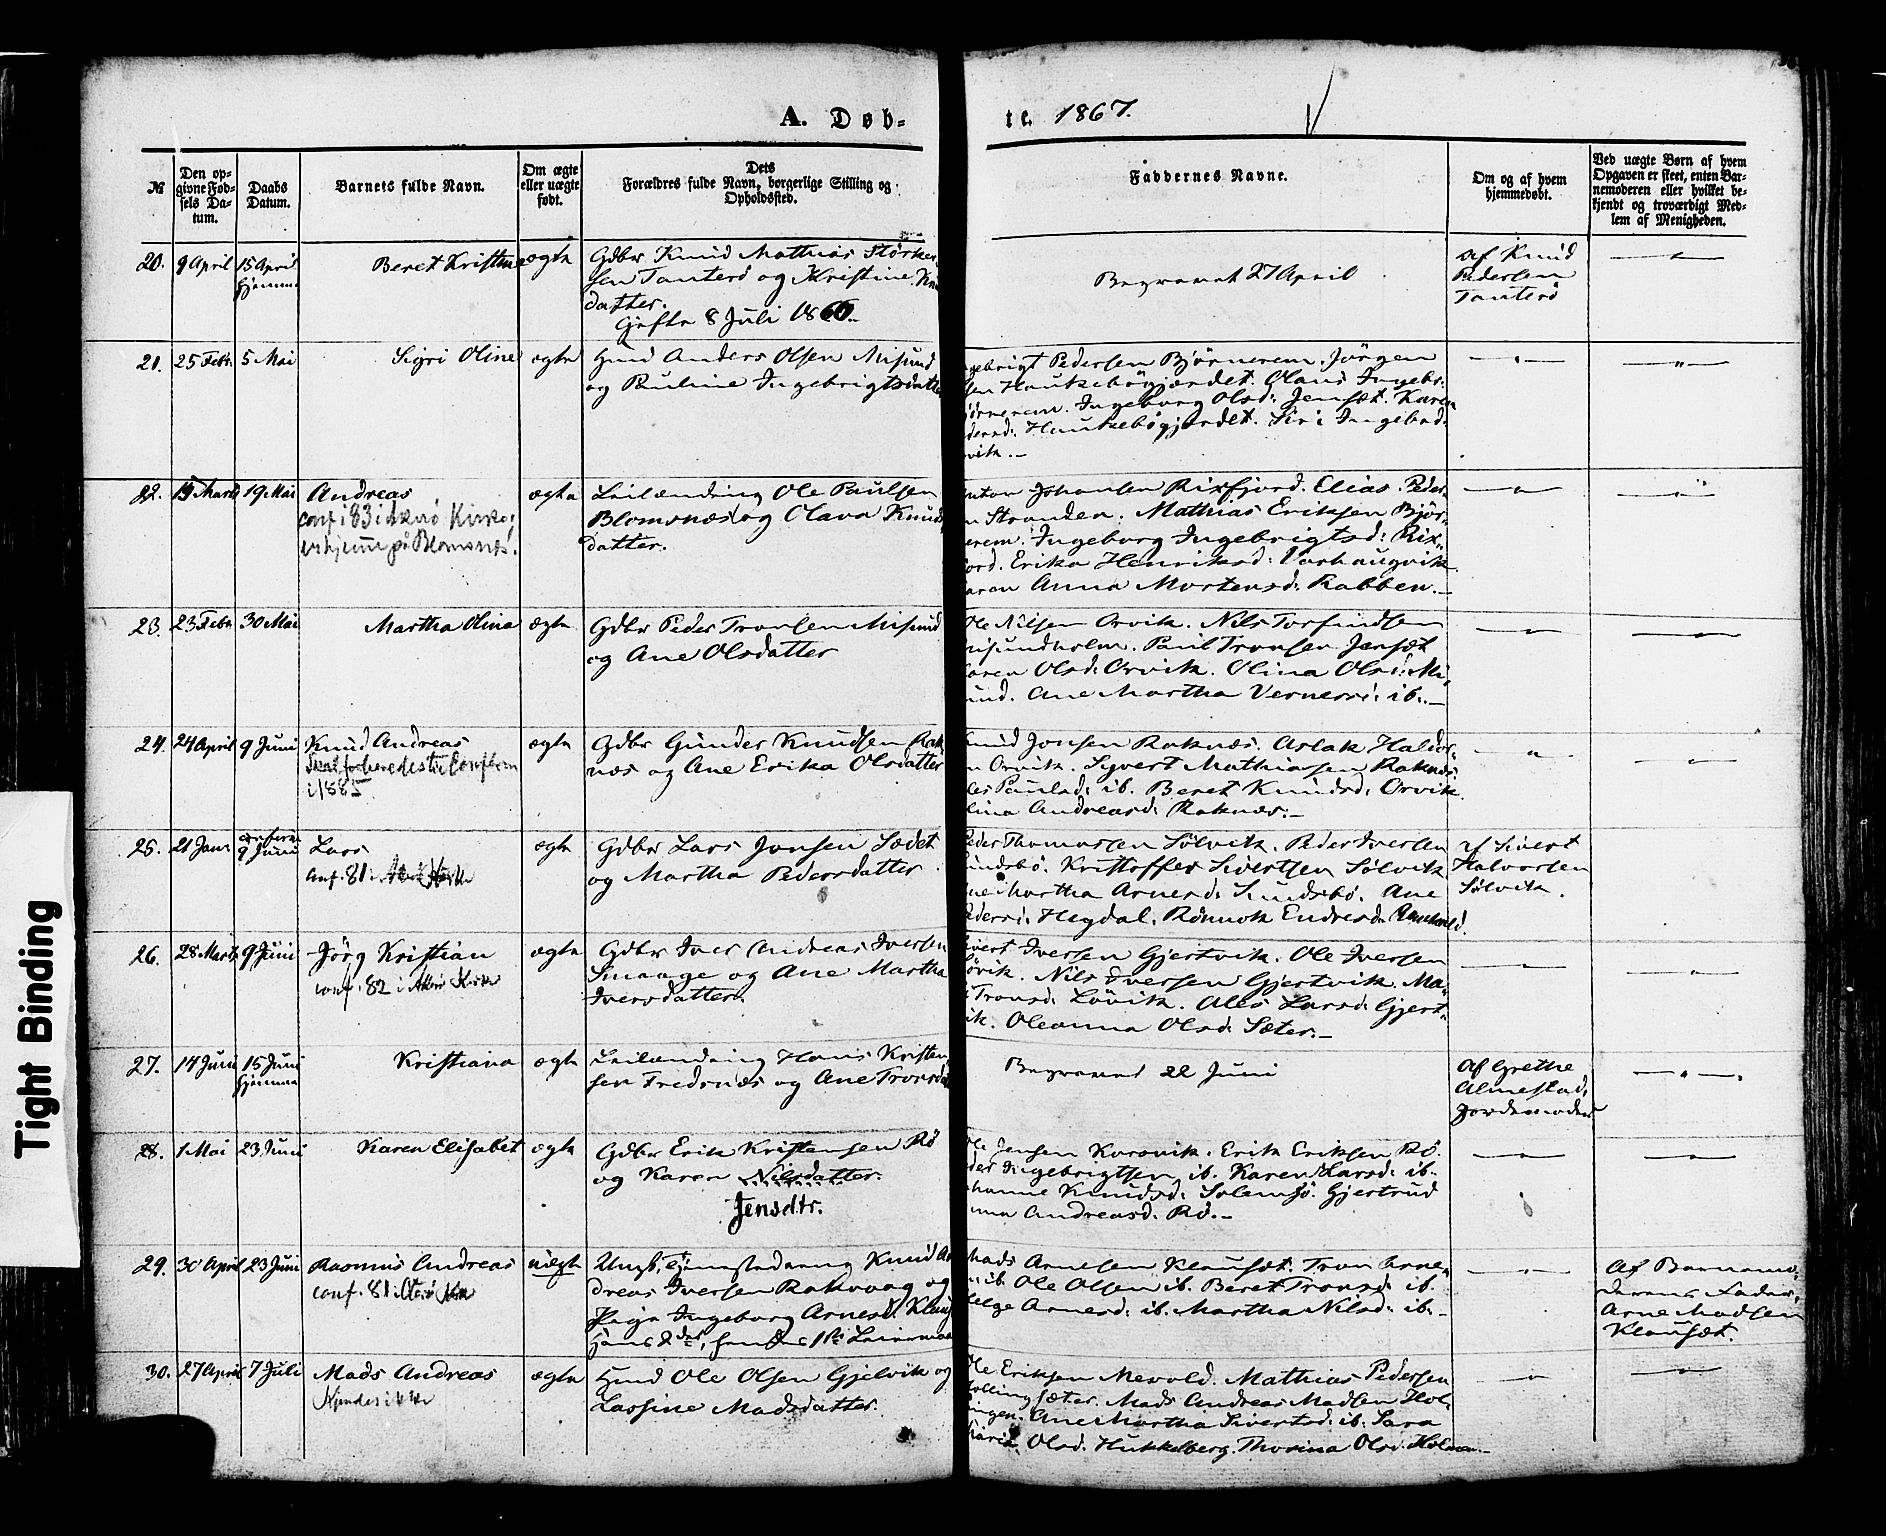 A. Døb-
te. 1867.
№
Den op-
givne Fød-
sels Da-
tum.
Daabs
Datum.
Barnets fulde Navn.
Om ægte
eller uægte
født.
Dets
Forældres fulde Navn, borgerlige Stilling og
Opholdssted.
Faddernes Navne.
Om og af hvem
hjemmedøbt.
Ved uægte Børn af hvem
Opgaven er skeet, enten Bar-
nemoderen eller hvilket be-
kjendt og troværdigt Med-
lem af Menigheden.
20. 9 April 15 April Beret Kristine ægte Gdbr Knud Mathias
hjemme
sen Tauterö og Kristine
datter.
Gifte 8 Juli 1860.
Begravet 27 April
Af Knud
Pedersen
Tauterö
21. 25 Febr. 5 Mai Sigri Oline ægte Hmd Anders Olsen Misund
og Pauline Ingebrigtsdatter
Pedersen Björnerem. Jörgen
Haukebögjerdet. Olaus Ingebr.
Ingeborg Olsd: Jensæt. Karen
Haukebögjerdet. Siri
22. Marts 19 Mai Andreas ægte Leilænding Ole Paulsen
conf i 83 i Akerö Kirke;
er hjemme på Blomsnæs.
Blomsnæs og Olava Knuds
datter.
Johansen Rixfjord. Elias Peder-
Stranden. Mathias Eriksen Björ-
Ingeborg Ingebrigtsd: Rix-
Erika Henriksd: Varhaugvik
Anna Mortensd: Rabben.
23. 23 Febr. 30 Mai Martha Olina ægte Gdbr Peder Tronsen Misund
og Ane Olsdatter
Ole Nilsen Orvik. Nils Torfindsen
Paul Tronsen Jensæt
Olsd: Orvik. Olina Olsd: Mi-
Ane Martha Vernersd: ib.
24. 24 April 9 Juni Knud Andreas ægte Gdbr Gunder Knudsen Rak-
Skal forberedes til Confirm
i 1885
næs og Ane Erika Olsdatter
Knud Jonsen Raknæs. Aslak Haldor-
Orvik. Syvert Mathiasen Raknæs.
Paulsd: ib. Beret Knudsd: Orvik.
Andreasd: Raknæs.
25. 21 Janr 9 Juni Lars ægte Gdbr Lars Jonsen Sædet
conf. 81 i
og Martha Pedersdatter
Peder Thomassen Sölvik. Peder Iversen
Kristoffer Sivertsen Sölvik
Martha Arnesd: Sundsbö. Ane
Hegdal. Rönnok Endresd:
Af Sivert
Halvorsen
Sölvik.
26. 28 Marts 9 Juni Jörg Kristian ægte Gdbr Iver Andreas Iversen
conf. 82 i Akerö Kirke
Smaage og Ane Martha
Iversdatter.
Iversen Gjertvik. Ole Iversen
Nils Iversen Gjertvik. Ma-
Tronsd: Lövik. Ales Larsd: Gjert-
vik. Oleanna Olsd: Sæter.
27. 14 Juni 15 Juni Kristiana ægte Leilænding Hans Kristen
hjemme
sen Frednæs og Ane Tronsd
Begravet 22 Juni
Af Grethe
Almestad,
Jordemoder
28. 1 Mai 23 Juni Karen Elisabet ægte Gdbr Erik Kristensen Rö
og Karen Nilsdatter.
Jensdtr.
Ole Jensen Korsvik. Erik Eriksen Rö.
Ingebrigtsen ib. Karen Larsd: ib.
Knudsd: Solemsö. Gjertrud
Andreasd: Rö.
29. 30 April 23 Juni Rasmus Andreas uægte Ungk, Gjemstadeung Knud An
conf. 81 i
dreas Iversen Rakvaag og
Pige Ingeborg Arnesd: Klaus
Hans 2det, hendes 1ste Leiermaal
Mads Arnesen Klausæt. Tron Arne-
ib. Ole Olsen ib. Beret Tronsd: ib.
Helge Arnesd: ib. Martha Nilsd: ib.
Af Barnemo-
derens Fader,
Arne Madsen
Klausæt.
30. 27 April 7 Juli Mads Andreas ægte Hmd Ole Olsen Gjelvik og
Kjendes ikke
Lassine Madsdatter.
Ole Eriksen Mevold. Mathias Pedersen
Hollingsæter. Mads Andreas Madsen Hol-
lingen. Ane Martha Sivertsd: ib. Sara
Maria Olsd: Hukkelberg. Thorina Olsd:
Tight Binding